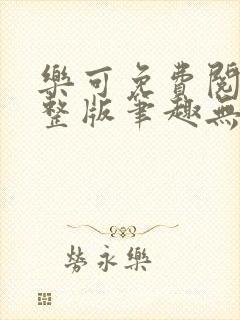 樂可免費閱
整版筆趣無
勞永樂